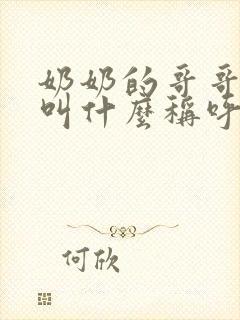 奶奶的哥哥
叫什麼稱呼
何欣